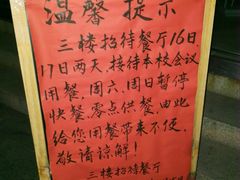 温馨提示
三楼招待餐厅16日、
17日两天,接待本校会议
用餐,周六、周日暂停
快餐、零点供餐,由此
给您用餐带来不便,
敬请谅解!
三楼招待餐厅